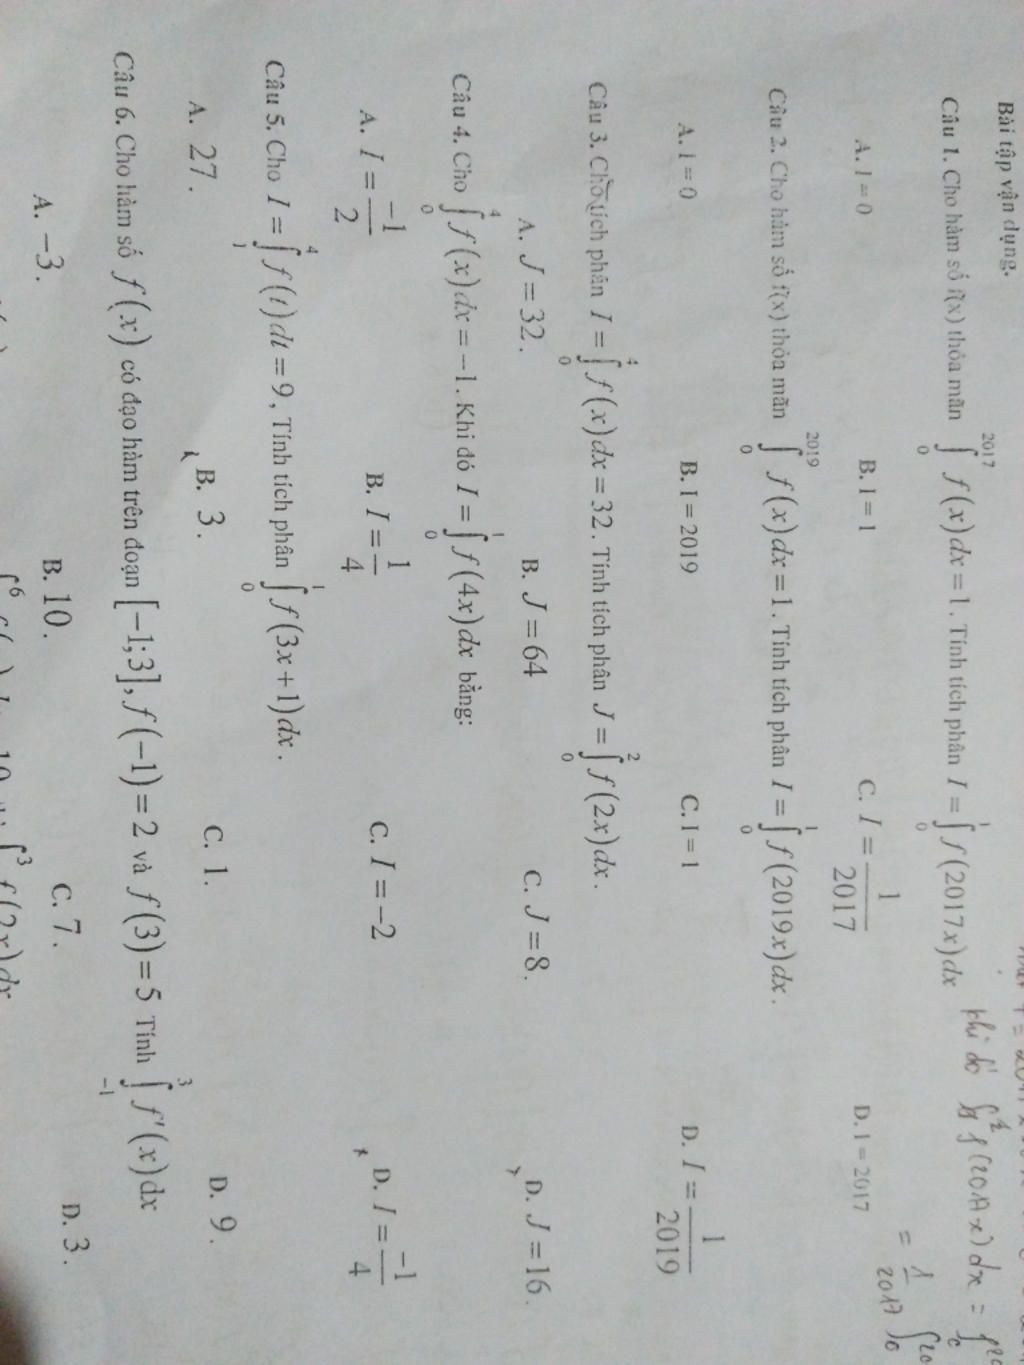 Bài tập vận dụng.
Câu 1. Cho hàm số f(x) thỏa mãn ∫₀²⁰¹⁷ f(x)dx = 1. Tính tích phân I = ∫₀¹ f(2017x)dx
khi đó
A. I = 0 B. I = 1 C. I = 1/2017 D. I = 2017
= 1/2017
Câu 2. Cho hàm số f(x) thỏa mãn ∫₀²⁰¹⁹ f(x)dx = 1. Tính tích phân I = ∫₀¹ f(2019x)dx.
A. I = 0 B. I = 2019 C. I = 1 D. I = 1/2019
Câu 3. Cho tích phân I = ∫₀⁴ f(x)dx = 32. Tính tích phân J = ∫₀² f(2x)dx.
A. J = 32. B. J = 64 C. J = 8. D. J = 16.
Câu 4. Cho ∫₀⁴ f(x)dx = −1. Khi đó I = ∫₀¹ f(4x)dx bằng:
A. I = −1/2 B. I = 1/4 C. I = −2 D. I = −1/4
Câu 5. Cho I = ∫₁⁴ f(t)dt = 9, Tính tích phân ∫₀¹ f(3x+1)dx.
A. 27. B. 3. C. 1. D. 9.
Câu 6. Cho hàm số f(x) có đạo hàm trên đoạn [−1;3], f(−1) = 2 và f(3) = 5 Tính ∫₋₁³ f'(x)dx
A. −3. B. 10. C. 7. D. 3.